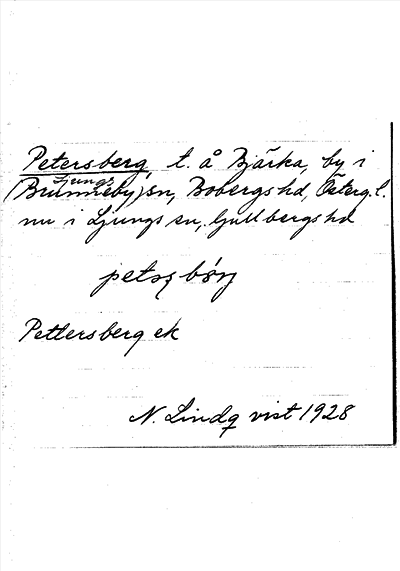 Petersberg, t. å Bjärka, by i
Ljungs
(Brunneby) sn, Bobergs hd, Österg. l.
nu i Ljungs sn, Gullbergs hd
petsbärj
Pettersberg ek
N. Lindq vist 1928